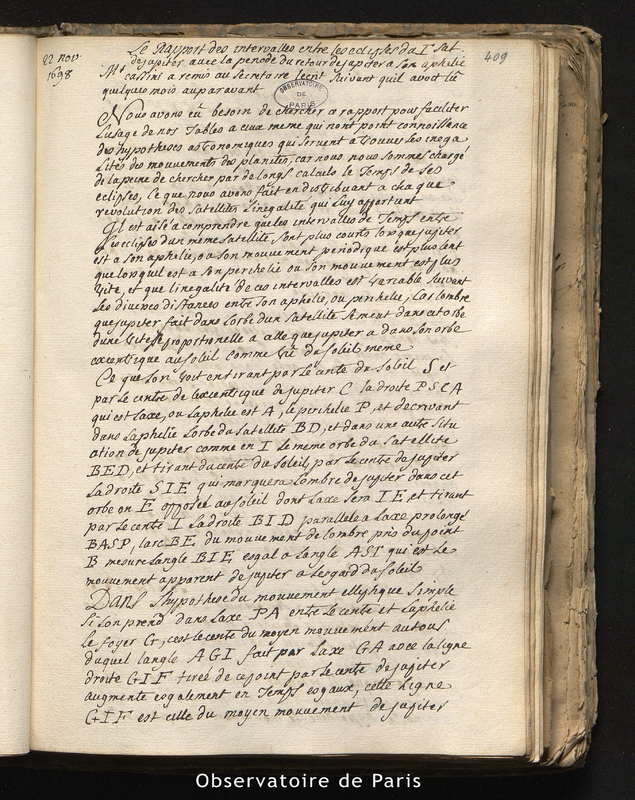 22 nov
1698
409
Le Rapport des intervalles entre les eclipses du I sat.
de jupiter avec la periode du retour de jupiter a son aphelie
Mr cassini a remis au secretaire lecrit suivant quil avoit lû
quelques mois auparavant
OBSERVATOIRE
DE
PARIS
Nous avons eû besoin de chercher ce rapport pour faciliter
lusage de nos Tables a ceux meme qui nont point connoissance
des hypotheses astronomiques qui servent a trouver les inega
lités des mouvements des planetes, car nous nous sommes chargé
de la peine de chercher par de longs calculs le Temps de ses
eclipses, ce que nous avons fait en distribuant a chaque
revolution des satellites linegalité qui luy appartient
Il est aisé a comprendre que les intervalles de Temps entre
les eclipses dun meme satellite, sont plus courts lorsque jupiter
est a son aphelie, ou son mouvement periodique est plus lent
que lorsquil est a son perihelie ou son mouvement est plus
vite, et que linegalité de ces intervalles est variable suivant
les diverses distances entre son aphelie, ou perihelie, car lombre
que jupiter fait dans lorbe dun satellite se meut dans cet orbe
dune vitesse proportionelle a celle que jupiter a dans son orbe
excentrique au soleil comme vû du soleil meme
Ce que lon voit en tirant par le centre du soleil S et
par le centre de lexcentrique de jupiter C la droite PSCA
qui est laxe, ou laphelie est A, le perihelie P, et decrivant
dans laphelie lorbe du satellite BD, et dans une autre situ
ation de jupiter comme en I le meme orbe du satellite
BED, et tirant du centre du soleil, par le centre de jupiter
la droite SIE qui marquera lombre de jupiter dans cet
orbe en E opposé au soleil dont laxe sera IE, et tirant
par le centre I la droite BID parallele a laxe prolongé
BASP, larc BE du mouvement de lombre pris du point
B mesure langle BIE esgal a langle ASI qui est le
mouvement apparent de jupiter a lesgard du soleil
Dans lhypothese du mouvement elliptique simple
si lon prend dans laxe PA entre le centre et laphelie
le foyer G, cest le centre du moyen mouvement autour
duquel langle AGI fait par laxe GA avec la ligne
droite GIF tireé de ce point par le centre de jupiter
augmente esgalement en Temps esgaux, cette ligne
GIF est celle du moyen mouvement de jupiter
Observatoire de Paris